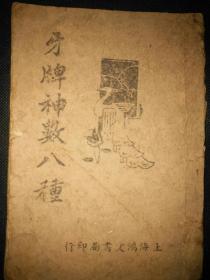 牙牌神數八種
上海鴻文書局印行